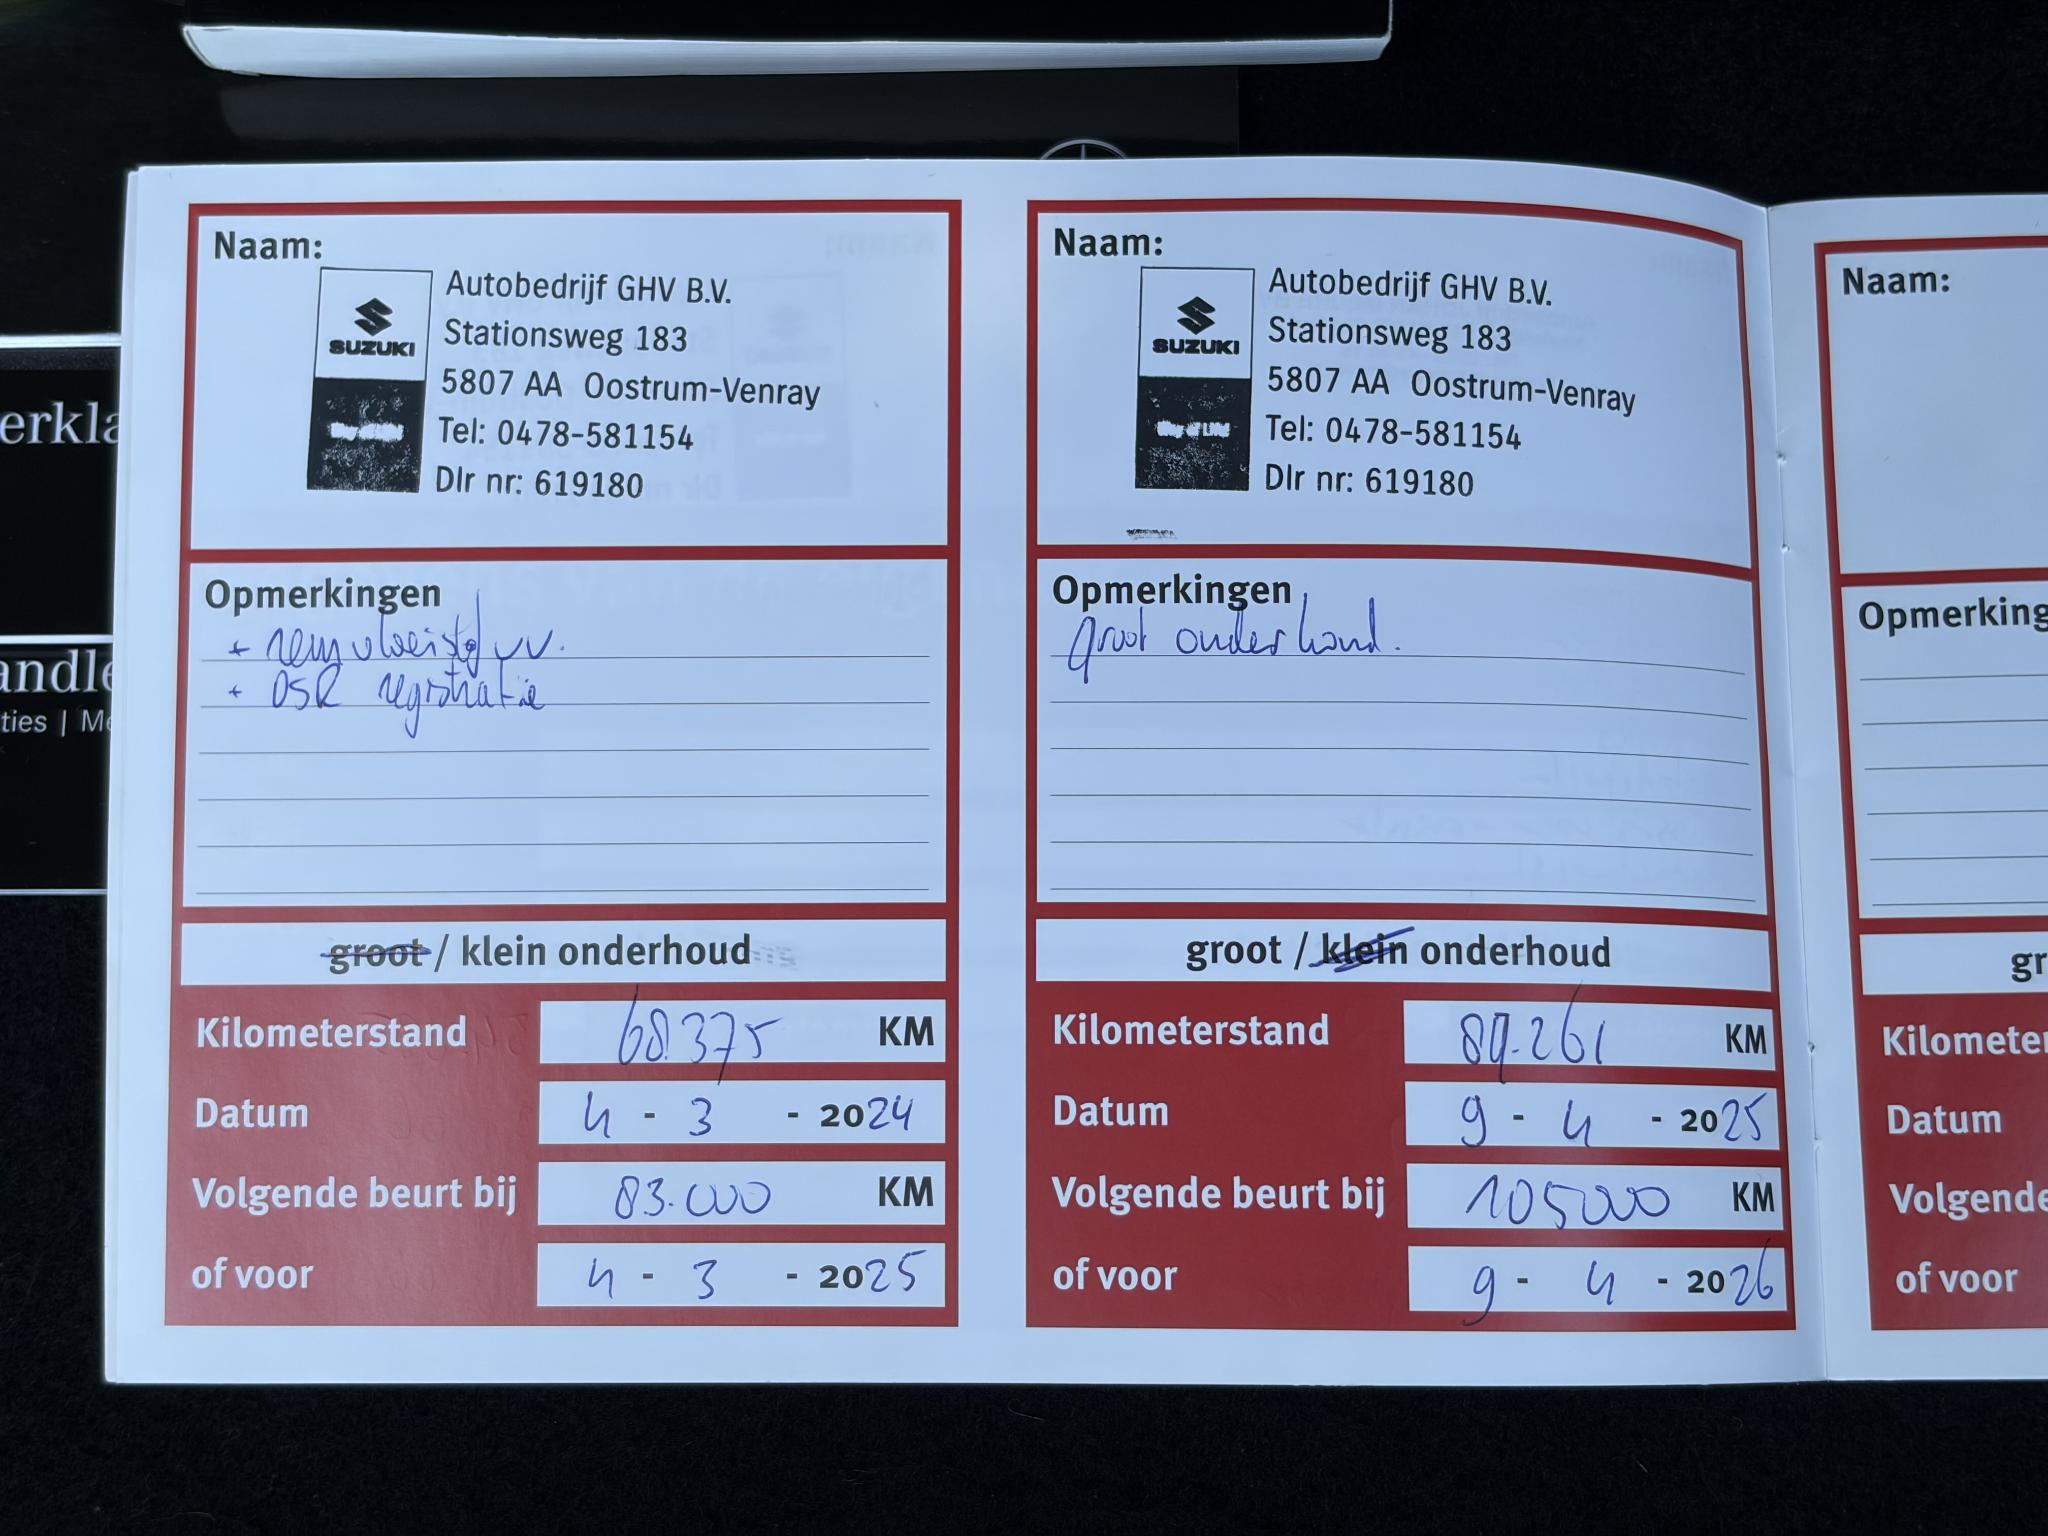 erkla
andle
ties | Me
Naam:
SUZUKI
Autobedrijf GHV B.V.
Stationsweg 183
5807 AA Oostrum-Venray
Tel: 0478-581154
Dlr nr: 619180
Opmerkingen
+ remvloeistof vv.
+ OSR registratie
groot / klein onderhoud
Kilometerstand 68.375 KM
Datum 4 - 3 - 2024
Volgende beurt bij 83.000 KM
of voor 4 - 3 - 2025
Naam:
SUZUKI
Autobedrijf GHV B.V.
Stationsweg 183
5807 AA Oostrum-Venray
Tel: 0478-581154
Dlr nr: 619180
Opmerkingen
groot onderhoud.
groot / klein onderhoud
Kilometerstand 89.261 KM
Datum 9 - 4 - 2025
Volgende beurt bij 105000 KM
of voor 9 - 4 - 2026
Naam:
Opmerking
gr
Kilometer
Datum
Volgende
of voor